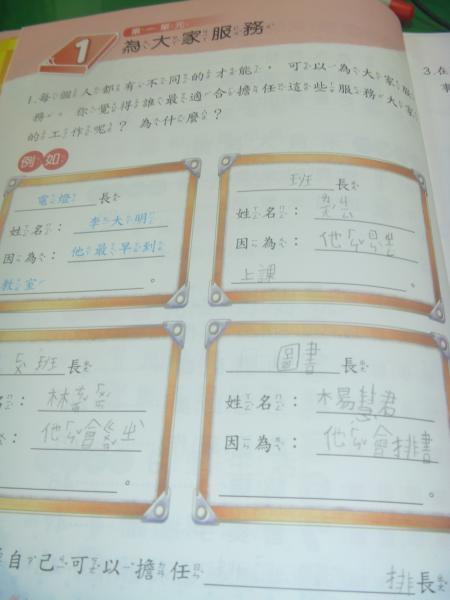 第一單元
1 為大家服務
1.每個人都有不同的才能，可以為大家服
務。你覺得誰最適合擔任這些服務大家
的工作呢？為什麼？
3.在
例如
電燈長
姓名：李大明
因為：他最早到
教室。
班長
姓名：
因為：他
上課
班長
名：林
：他會
。
圖書長
姓名：楊慧君
因為：他會排書
。
自己可以擔任 排長